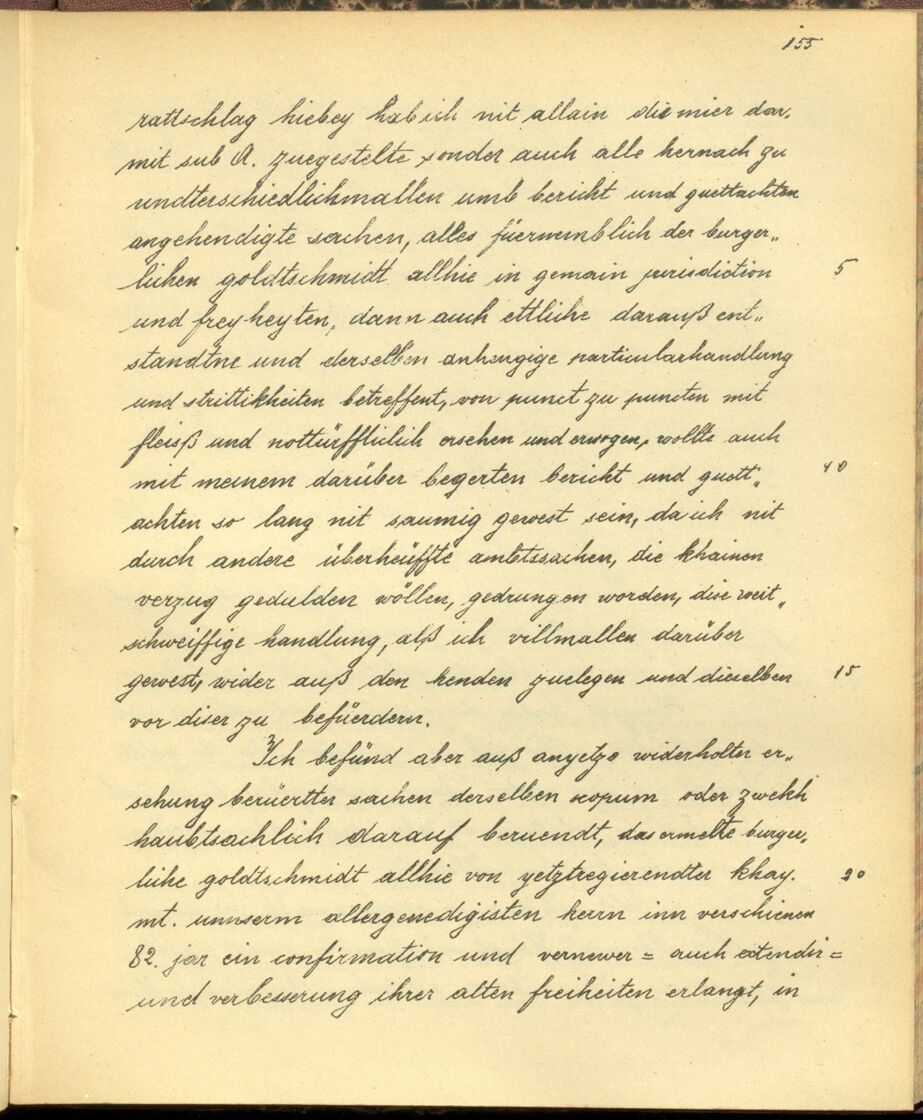 155
rattschlag hiebey hab ich nit allain die mier dar,
mit sub A. zuegestelte sonder auch alle hernach zu
undterschiedlichmallen umb bericht und guettachten
angehendigte sachen, alles füernemblich der burger„
lichen goldtschmidt allhie in gemain jurisdiction 5
und freyheyten, dann auch ettliche darauß ent„
standtne und derselben anhengige particularhandlung
und strittikheiten betreffent, von punct zu puncten mit
fleisß und nottürfftlich ersehen und erwogen, wollte auch
mit meinem darüber begerten bericht und guett„ 10
achten so lang nit saumig gewest sein, da ich nit
durch andere überheüffte ambtssachen, die khainen
verzug gedulden wöllen, gedrungen worden, dise weit„
schweiffige handlung, alß ich villmallen darüber
gewest, wider auß den henden zuelegen und dieselben 15
vor diser zu befüerdern.
Ich befünd aber auß anyetzo widerholter er„
sehung berüertter sachen derselben scopum oder zwekh
haubtsachlich darauf beruendt, das ermelte burger„
liche goldtschmidt allhie von yetztregierendter khay. 20
mt. unnserm allergenedigisten herrn inn verschienen
82. jar ein confirmation und vernewer= auch extendir=
und verbesserung ihrer alten freiheiten erlangt, in